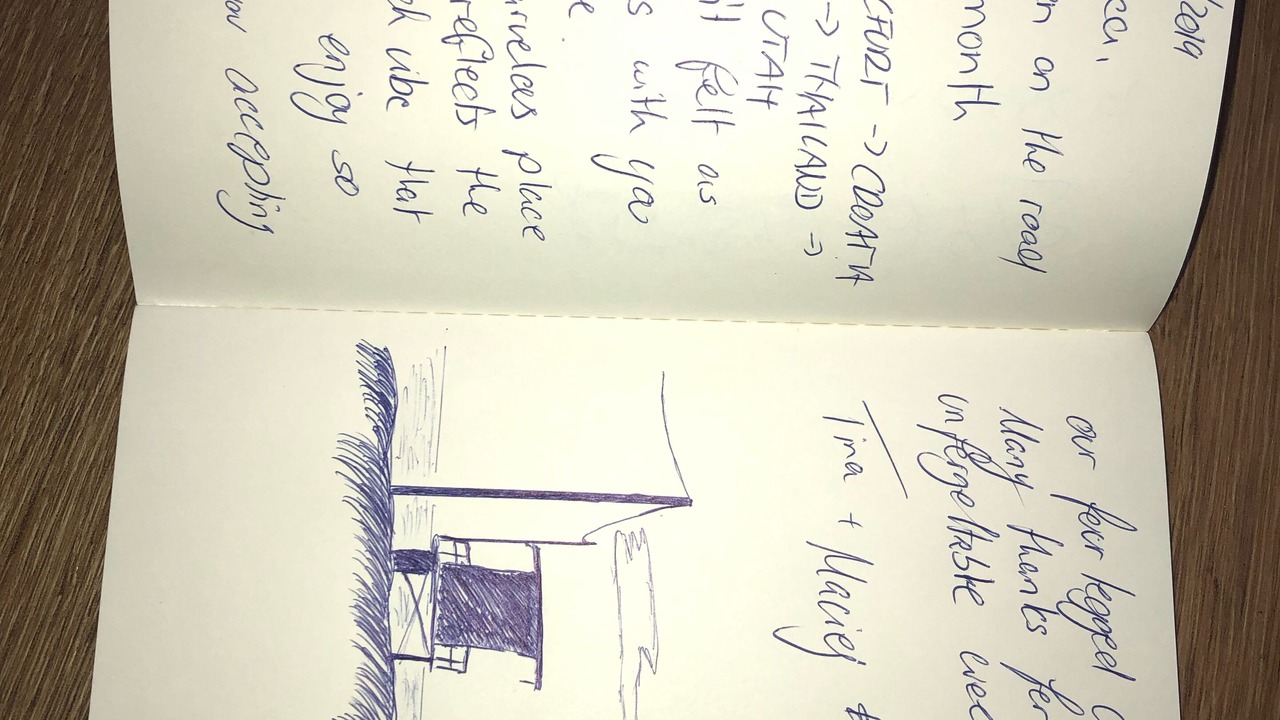 /2019
on the road
month
→ CROATIA
→ THAILAND →
UTAH
it felt as
s with you
place
reflects the
vibe that
enjoy so
accepting
our four legged
Many thanks for
unforgettable
Tina + Maciej